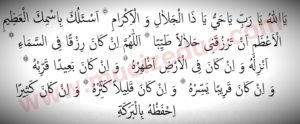 يَااللهُ يَا رَبِّ يَاحَيُّ يَا ذَا الْجَلَالِ وَ الْاِكْرَامِ ۞ اَسْئَلُكَ بِاِسْمِكَ الْعَظِيمِ
الْاَعْظَمِ اَنْ تَرْزُقَنِى حَلَالاً طَيِّبًا ۞ اَللّٰهُمَّ اِنْ كَانَ رِزْقًا فِى السَّمَاءِ ۞
اَنْزِلْهُ وَ اِنْ كَانَ فِى الْاَرْضِ اَظْهِرْهُ ۞ وَ اِنْ كَانَ بَعِيدًا قَرِّبْهُ ۞
وَ اِنْ كَانَ قَرِيبًا يَسِّرْهُ ۞ وَ اِنْ كَانَ قَلِيلًا كَثِّرْهُ ۞ وَ اِنْ كَانَ كَثِيرًا
اِحْفَظْهُ بِالْبَرَكَةِ